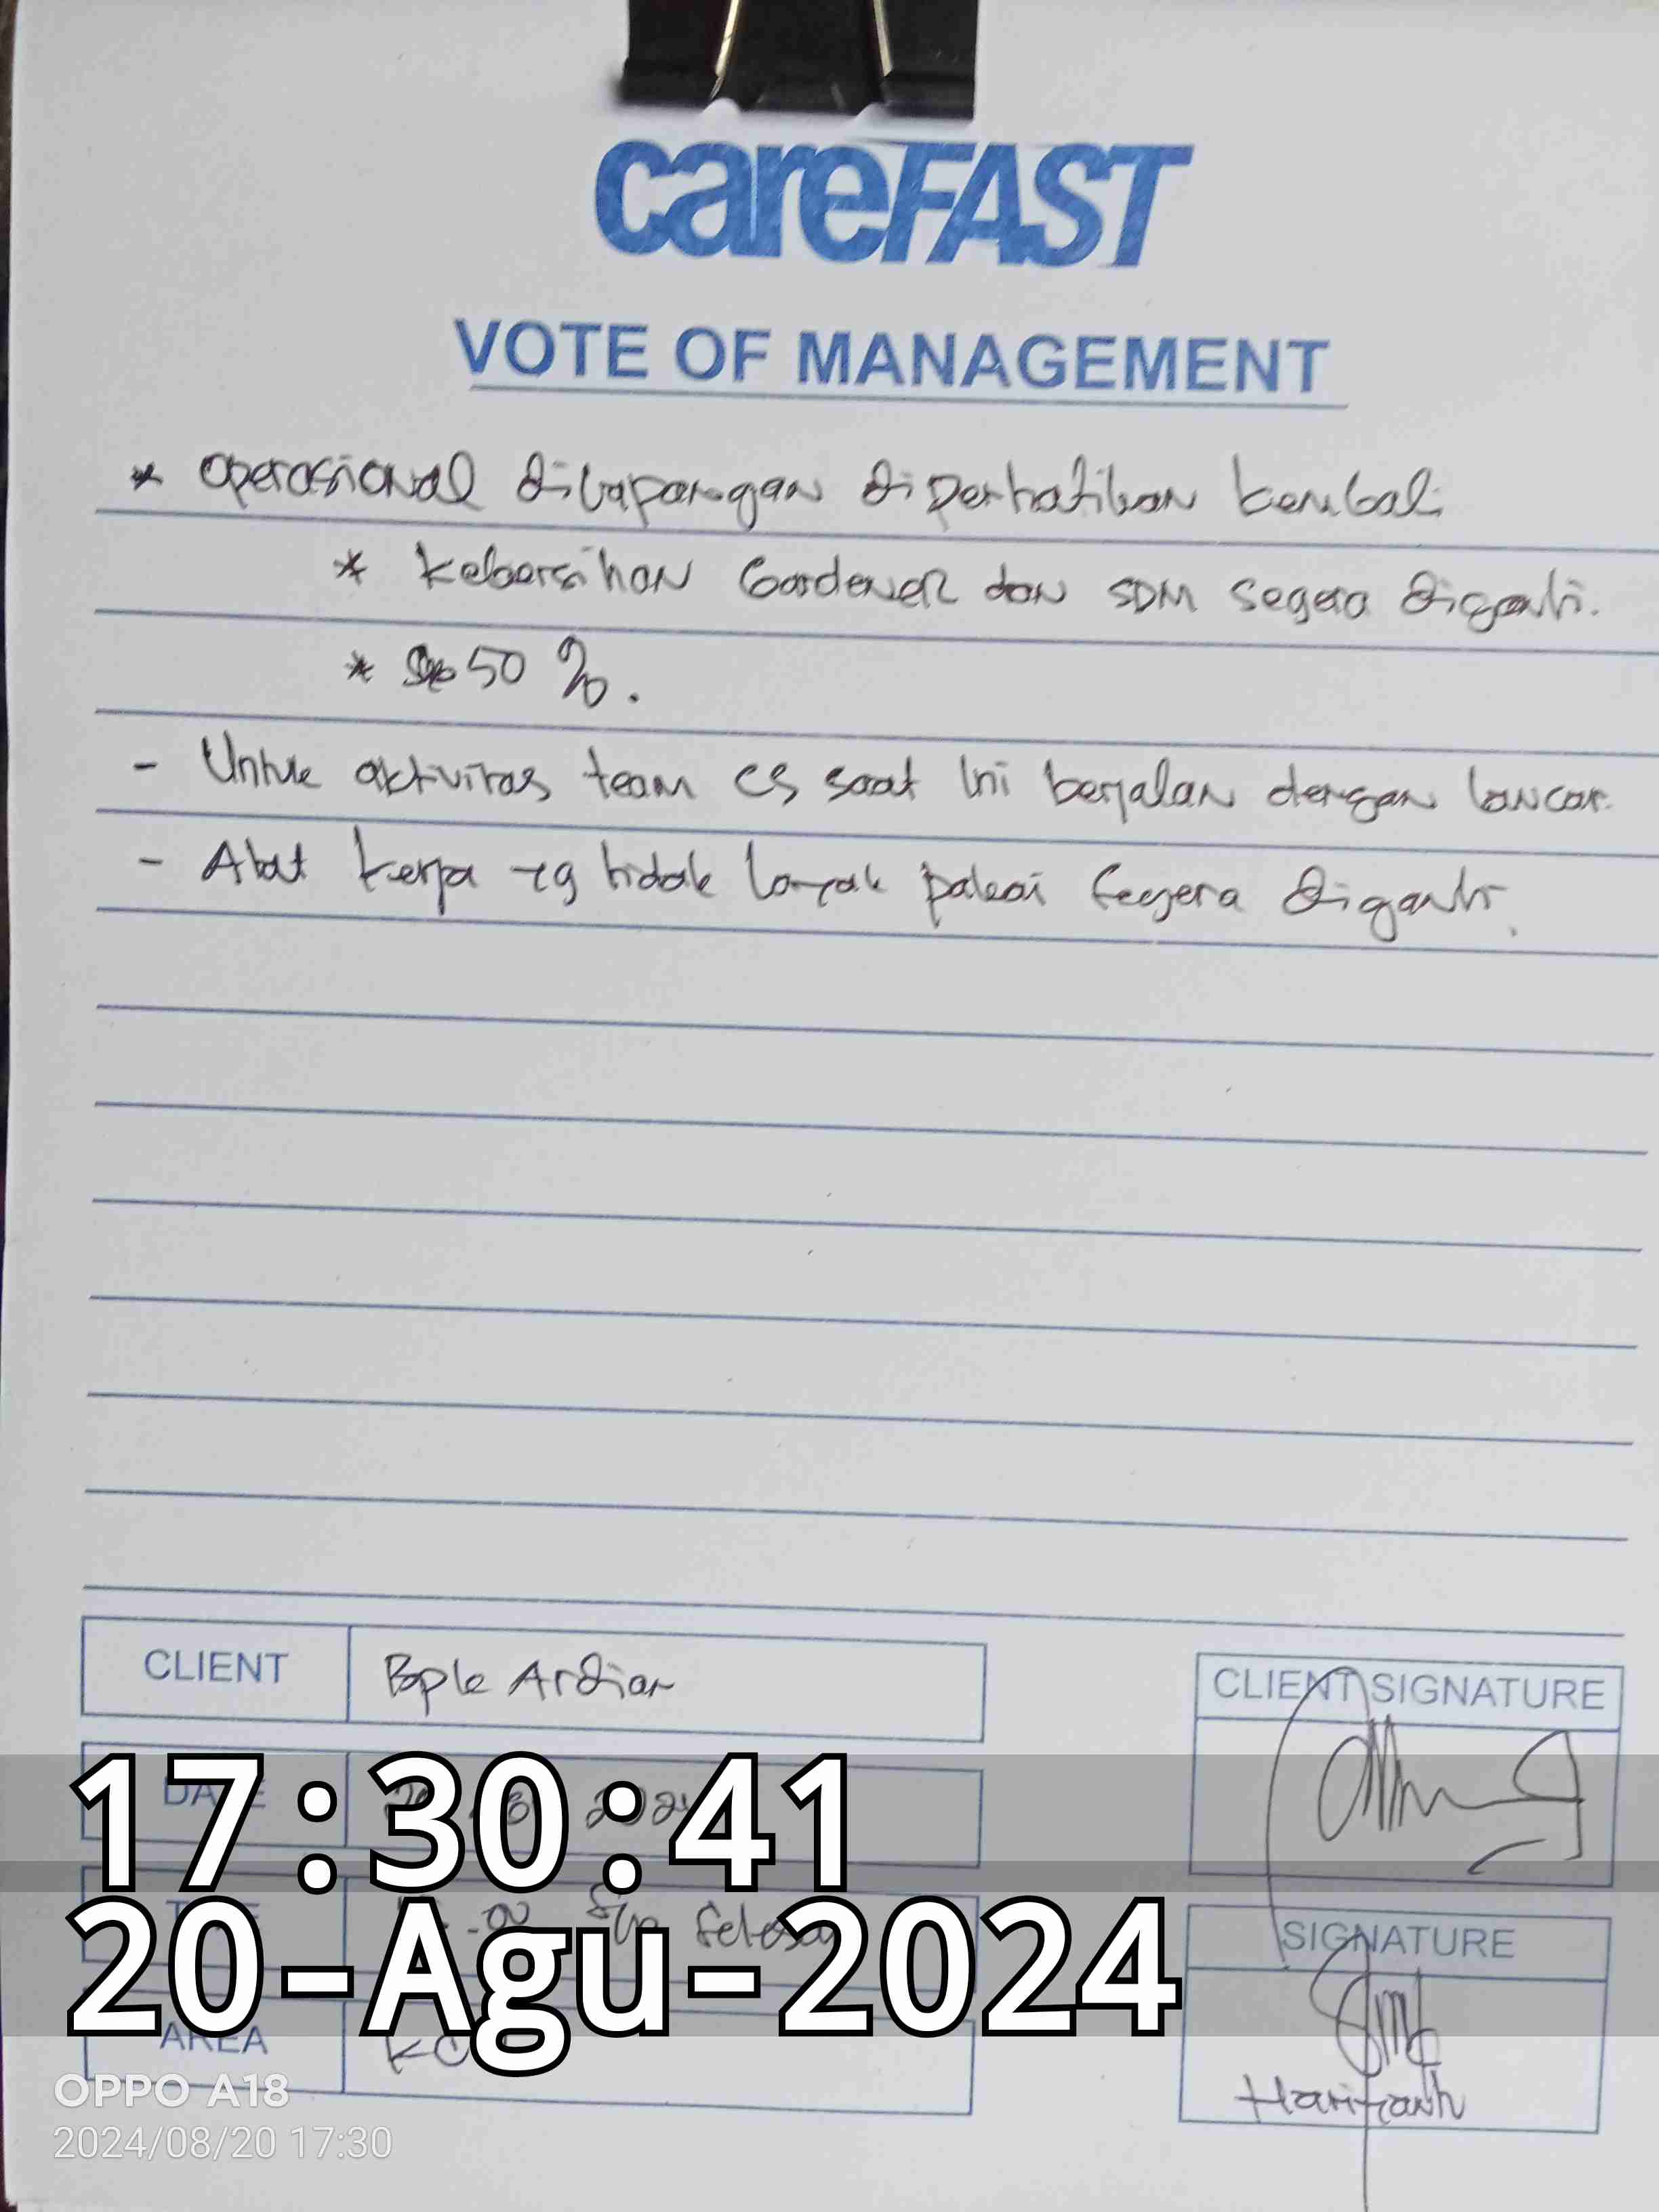 careFAST
VOTE OF MANAGEMENT
* Operasional dilapangan diperhatikan kembali
* Kebersihan Gardener dan SDM segera diganti.
* 50 %.
- Untuk aktivitas team CS saat ini berjalan dengan lancar.
- Alat kerja yg tidak layak pakai segera diganti.
CLIENT
Bple Ardian
CLIENT SIGNATURE
DATE
2024
17:30:41
selesai
SIGNATURE
20-Agu-2024
AREA
OPPO A18
Harifianh
2024/08/20 17:30